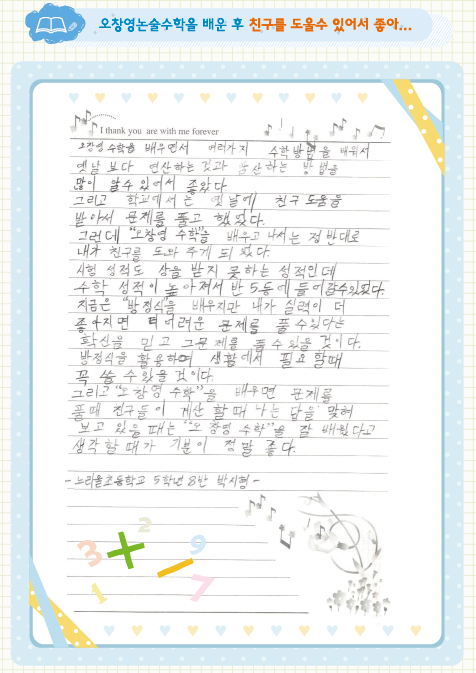 오창영논술수학을 배운 후 친구를 도울수 있어서 좋아...
I thank you are with me forever
오창영 수학을 배우면서 여러가지 수학방법을 배워서
옛날 보다 연산하는것과 암산하는 방법을
많이 알수있어서 좋았다
그리고 학교에서는 옛날에 친구 도움을
받아서 문제를 풀고 했었다.
그런데 "오창영 수학"을 배우고 나서는 정반대로
내가 친구를 도와 주게 되었다.
시험 성적도 상을 받지 못하는 성적인데
수학 성적이 높아져서 반 5등에 들어갈수있었다.
지금은 "방정식"을 배우지만 내가 실력이 더
좋아지면 더 어려운 문제를 풀 수있다는
확신을 믿고 그 문제를 풀 수 있을 것이다.
방정식을 활용하여 생활에서 필요할때
꼭 쓸 수 있을 것이다.
그리고 "오창영 수학"을 배우면 문제를
풀때 친구들이 계산 할때 나는 답을 맞혀
보고 있을 때는 "오창영 수학"을 잘 배웠다고
생각할때가 기분이 정말 좋다.
- 노라울초등학교 5학년 8반 박시형 -
2
3 + 9
1 - 7